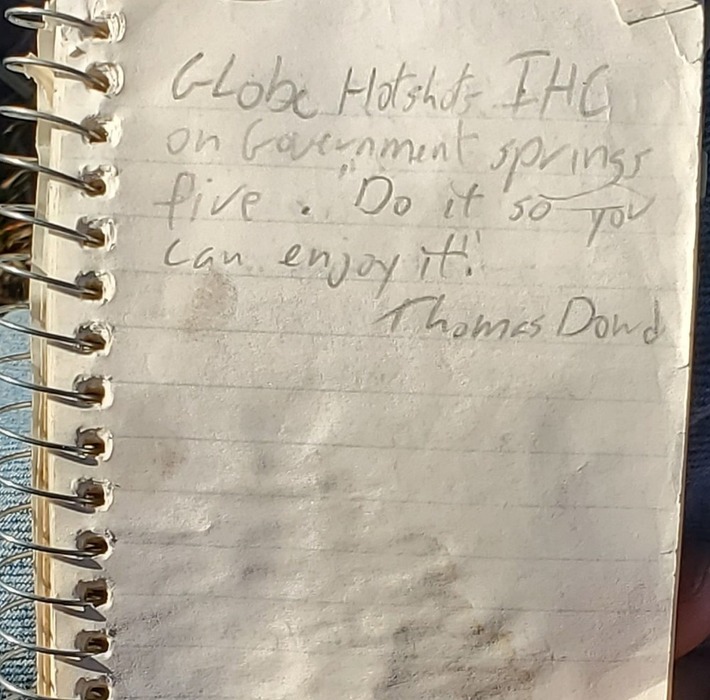 Globe Hotshots IHC
on Government springs
five . "Do it so you
can enjoy it".
Thomas Dowd